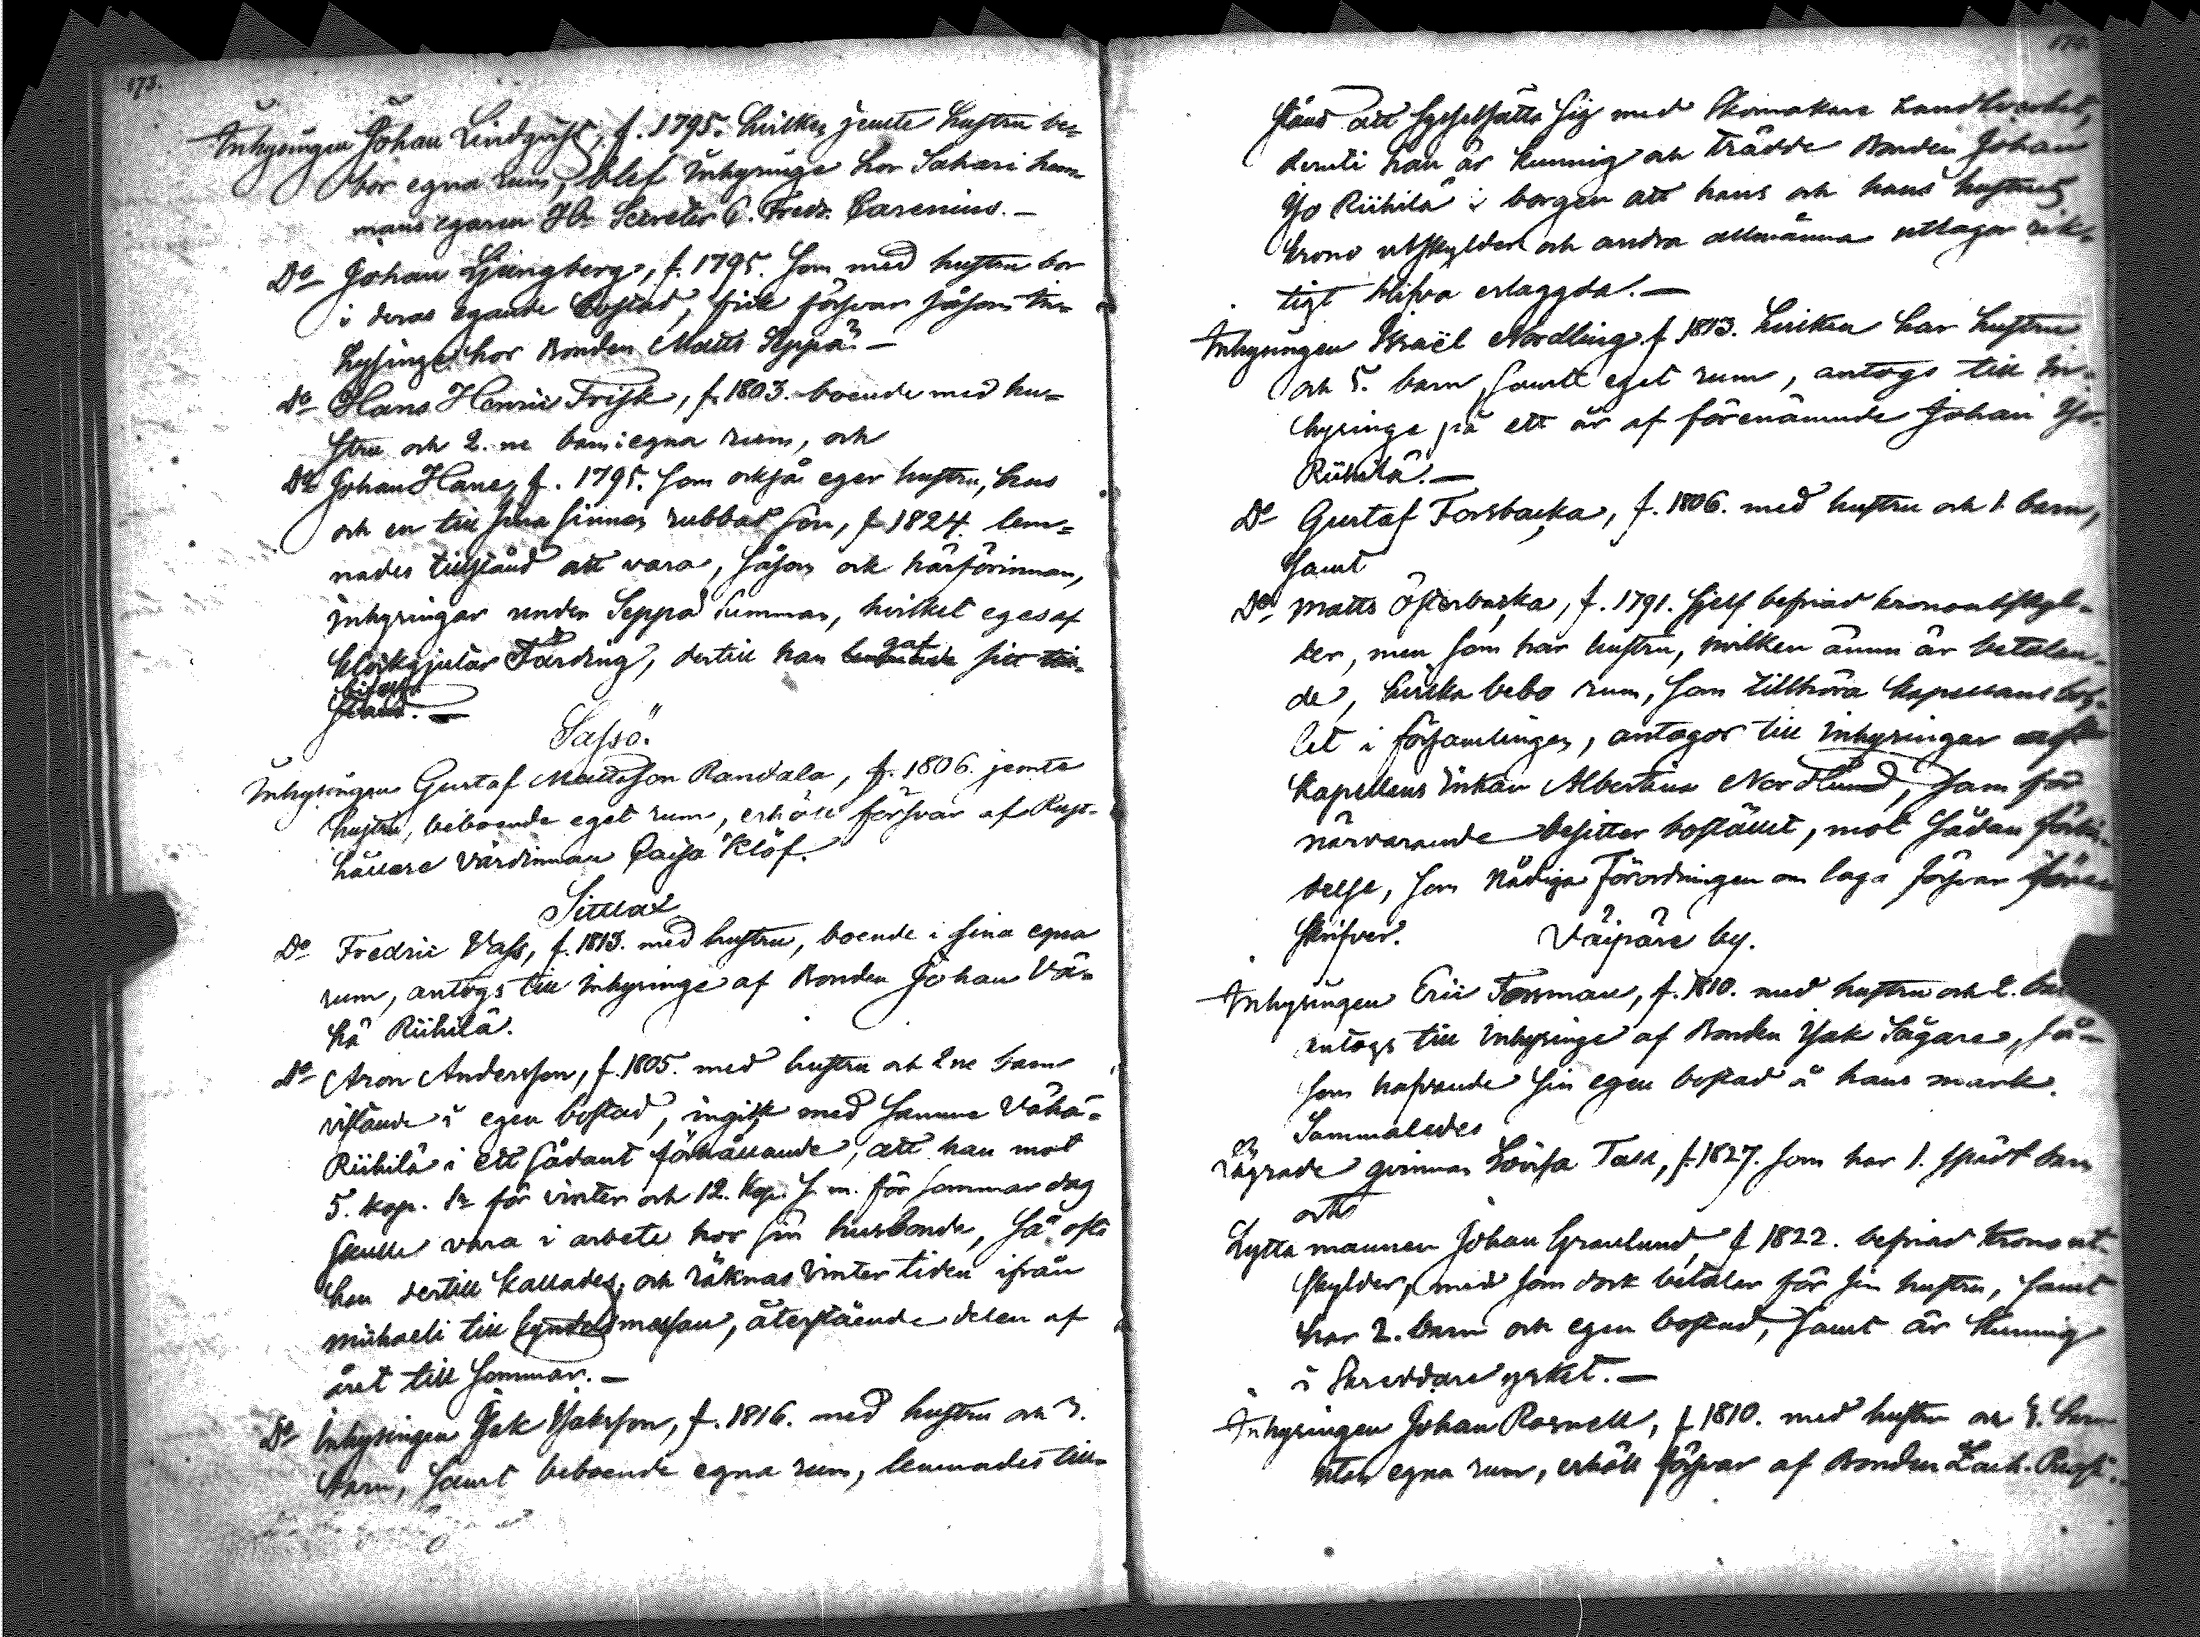 173.
Inhysingen Johan Lindqvist, f. 1795. hvilken jemte hustru be-
bor egna rum, blef Inhysinge hos Sakari hem-
mans egaren Hr Secreter C. Fredr. Carenius.—
Do Johan Ljungberg, f. 1795. som med hustru bor
i deras egande bostad, fick försvar såsom In-
hysinge hos Bonden Matts Seppä.—
Do Hans Henric Frisk, f. 1803. boende med hu-
stru och 2.ne barn i egna rum, och
Do Johan Hane, f. 1795. som också eger hustru, hus
och en till sina sinnen rubbad son, f. 1824. lem-
nades tillstånd att vara, såsom ock härförinnan,
Inhysingar under Seppä hemman, hvilket eges af
klockgjutar Färding, dertill han gaf sitt
bifall.—
Sassö.
Inhysingen Gustaf Mattsson Randala, f. 1806. jemte
hustru, beboende eget rum, erhöll försvar af Rust-
hållare värdinnan Caisa Klöf.
Do Fredric Vass, f. 1813. med hustru, boende i sina egna
rum, antogs till Inhysinge af Bonden Johan Vä-
hä Riihilä.
Do Aron Andersson, f. 1805. med hustru och 2ne barn
vistande i egen bostad, ingick med samme Vähä-
Riihilä i ett sådant förhållande, att han mot
5. kop. Sr för vinter och 12. kop. S. m. för sommar dag
skulle vara i arbete hos sin husbonde, så ofta
han dertill kallades, och räknas vinter tiden ifrån
Michaeli till kyndelsmessan, återstående delen af
året till sommar.—
Do Inhysingen Isak Isaksson, f. 1816. med hustru och 3.
barn, samt beboende egna rum, lemnades till-
174.
stånd att sysselsätta sig med Skomakare handtverket,
deruti han är kunnig och trädde Bonden Johan
Yjo Riihilä i borgen att hans och hans hustrus
krono utskylder och andra allmänna utlagor rik-
tigt blifva erlaggda.—
Inhysingen Israël Nordling f. 1813. hvilken har hustru
och 5. barn, samt eget rum, antogs till In-
hysinge på ett år af förenämnde Johan Yjo
Riihilä.—
Do Gustaf Forsbacka, f. 1806. med hustru och 1. barn,
samt
Do Matts Österbacka, f. 1791. sjelf befriad kronoutskyl-
der, men som har hustru, hvilken ännu är betalan-
de, hvilka bebo rum, som tillhöra kapellans bol-
let i församlingen, antogos till Inhysingar af
Kapellans Enkan Albertina Nordlund, som för
närvarande besitter bostället, mot sådan förbin-
delse, som Nådiga Förordningen om laga försvar före-
skrifver.
Väipäre by.
Inhysingen Eric Forsman, f. 1810. med hustru och 2. barn
antogs till Inhysinge af Bonden Isak Sågare, så-
som hafvande sin egen bostad å hans mark.
Sammaledes
Lägrade qvinnan Lovisa Tall, f. 1827. som har 1. spädt barn
och
Lytta mannen Johan Granlund, f. 1822. befriad krono ut-
skylder, med som dock betalar för sin hustru, samt
har 2. barn och egen bostad, samt är kunnig
i Skreddare yrket.—
Inhysingen Johan Rosnell, f. 1810. med hustru och barn
utan egna rum, erhöll försvar af Bonden Zach.